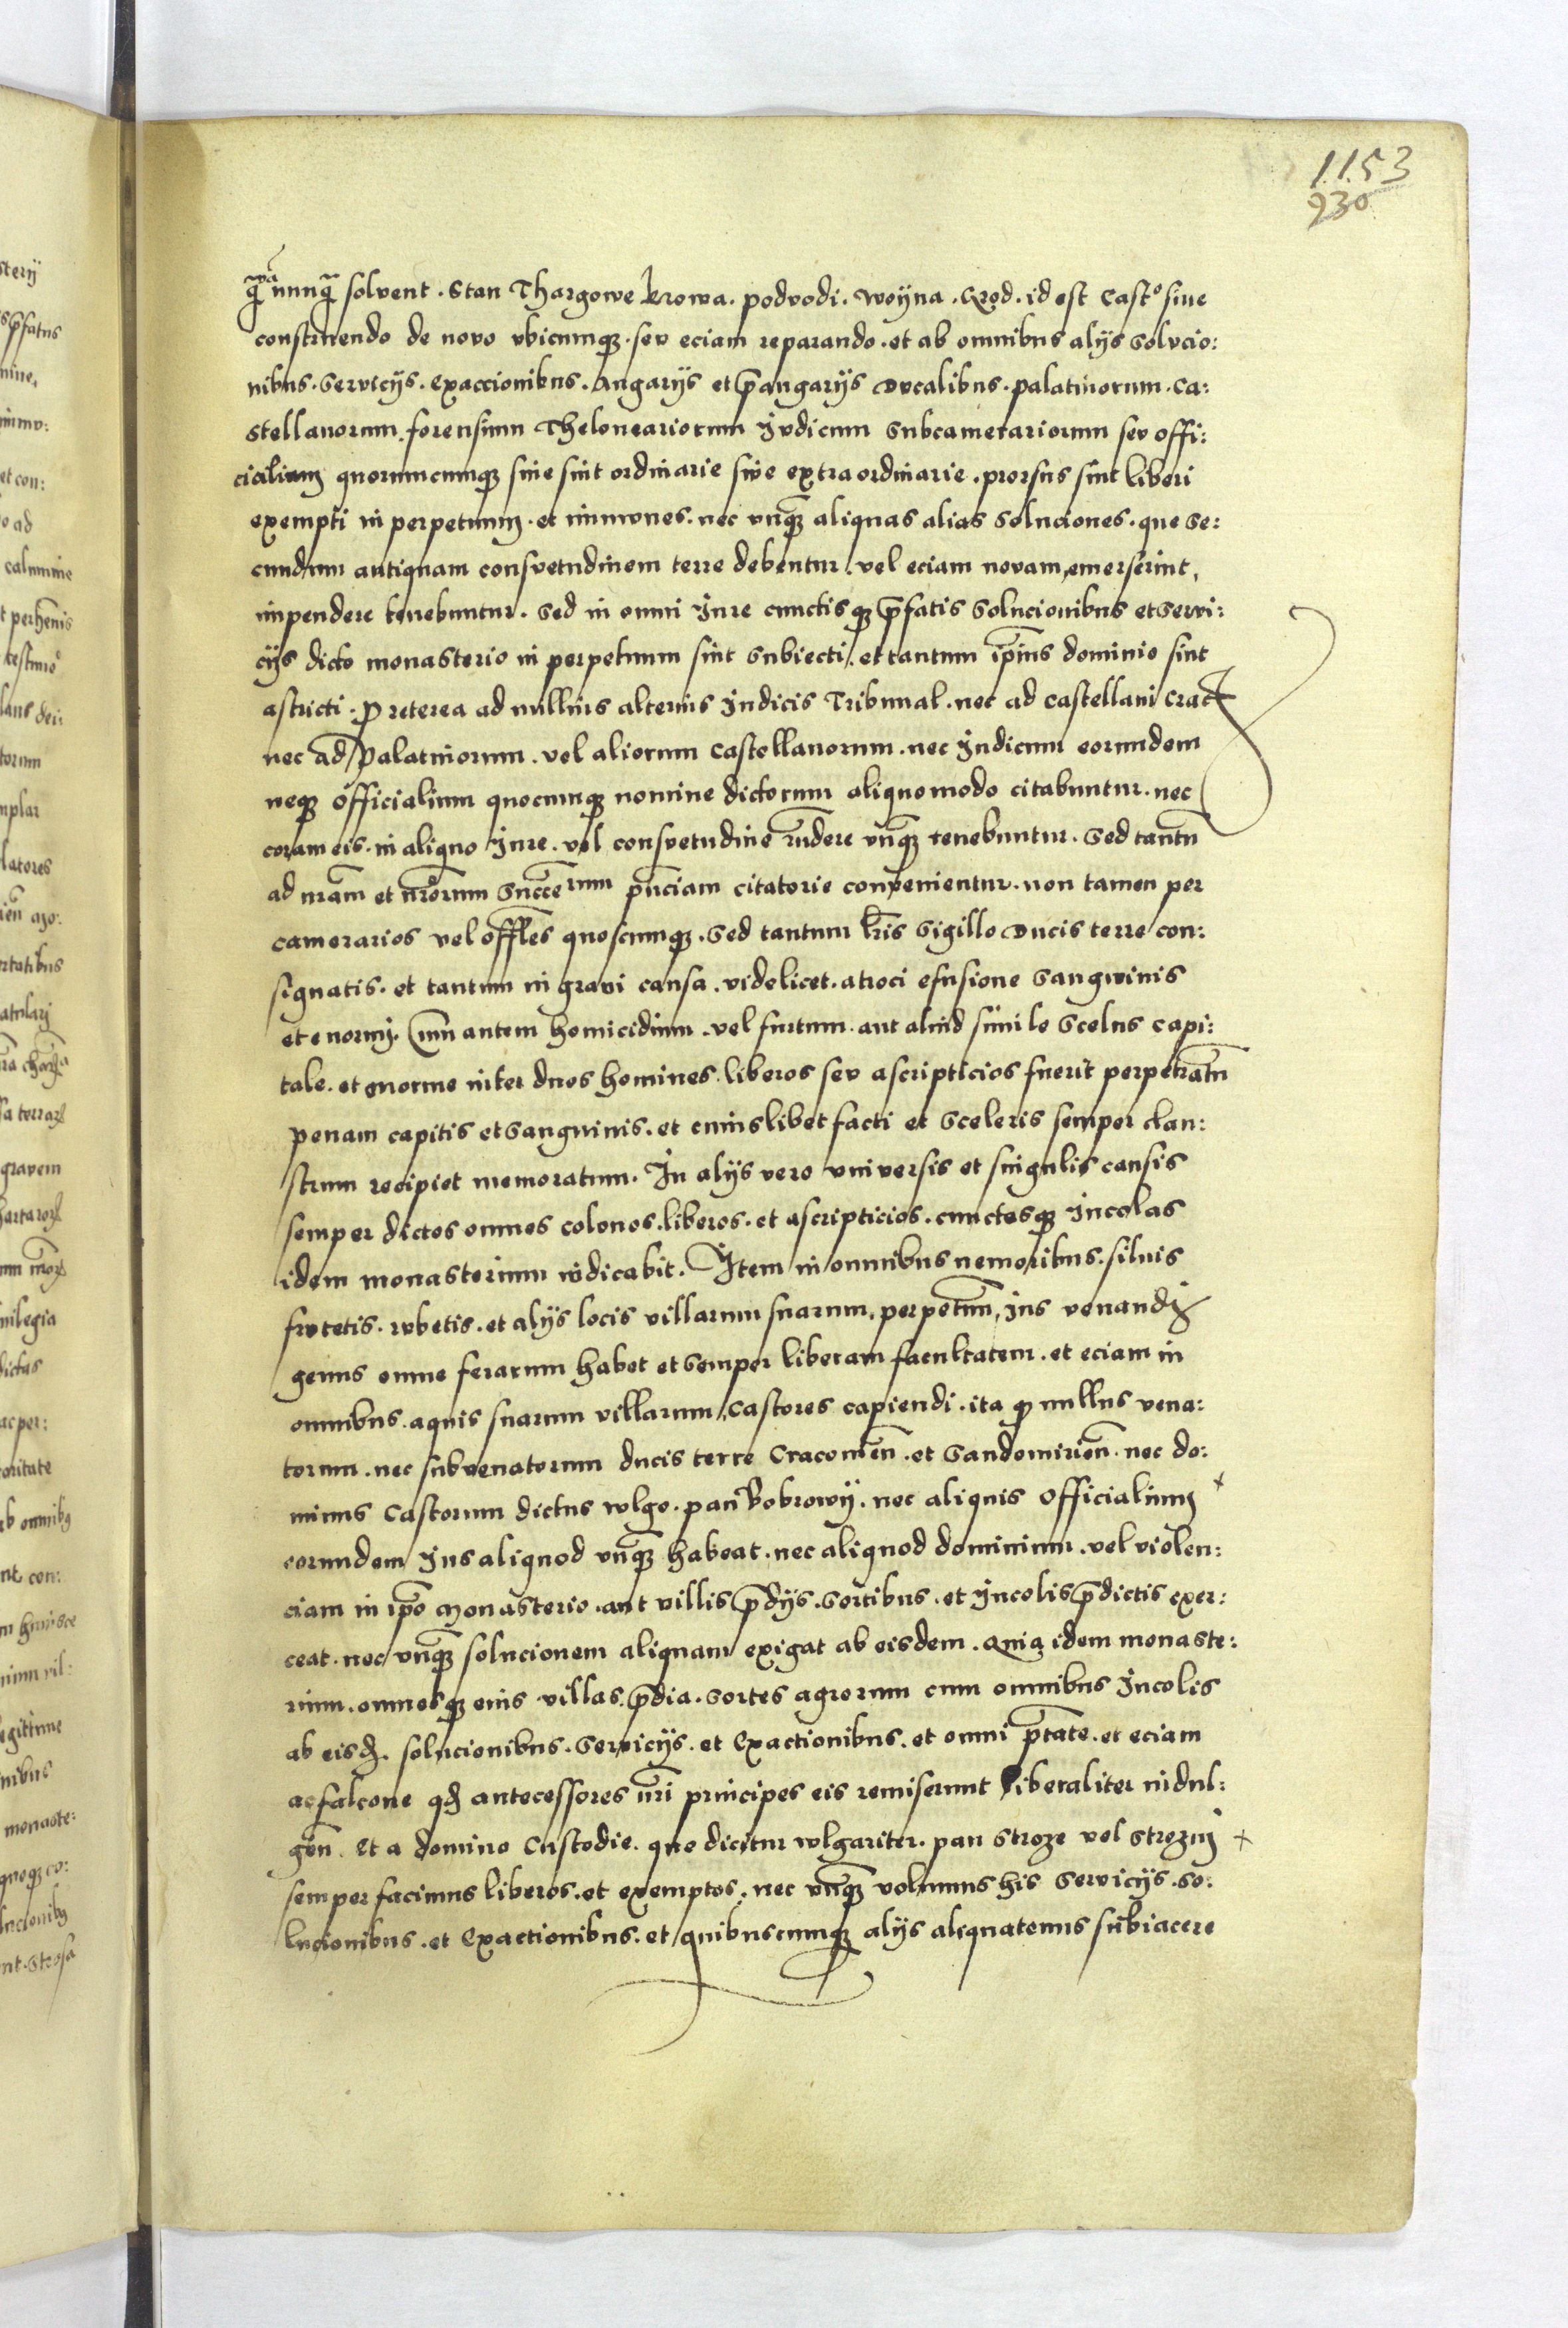 1153
930
q̃ wa nunq̃ solvent . Stan Thargowe krowa . podvodi . woyna . Grod . id est Casto sive
construendo de novo vbicumqz . sev eciam reparando . et ab omnibus alijs Solvcio:
nibus . Servicijs . exaccionibus . Angarijs et p̃angarijs Ducalibus . palatinorum . Ca:
stellanorum . forensium Theloneariorum Jvdicum Subcamerariorum sev offi:
cialium quorumcumqz sive sint ordinarie sive extraordinarie . prorsus sint liberi
exempti in perpetuum . et immvnes . nec vnq̃z aliquas alias Soluciones . que Se:
cundum antiquam consvetudinem terre debentur . vel eciam novam, emerserint,
impendere tenebuntur . Sed in omni Jure cunctisqz p̃fatis Solucionibus et Servi:
cijs dicto monasterio in perpetuum sint Subiecti . et tantum ip̃ius dominio sint
astricti . Preterea ad nullius alterius Judicis Tribunal . nec ad Castellani Crac
nec ad Palatinorum . vel aliorum Castellanorum . nec Judicum eorundem
neqz officialium quocumqz nomine dictorum aliquomodo citabuntur . nec
coram eis . in aliquo Jure . vel consvetudine rñdere vnq̃z tenebuntur . Sed tantũ
ad nrãm et nrõrum Succerum pñciam citatorie convenientur . non tamen per
camerarios vel offłes quoscumqz . Sed tantum lrĩs Sigillo Ducis terre con:
signatis . et tantum in gravi causa . videlicet . atroci efusione Sangwinis
et enormi . Cum autem homicidium . vel furtum . aut aliud simile Scelus capi:
tale . et enorme inter duos homines . liberos sev ascripticios fuerit perpetratũ
penam capitis et Sanguinis . et cuiuslibet facti et Sceleris semper clau:
strum recipiet memoratum . In alijs vero vniversis et singulis causis
semper dictos omnes colonos . liberos . et ascripticios . cunctosqz Jncolas
idem monasterium iudicabit . Jtem in omnibus nemoribus . siluis
frvtetis . rvbetis . et alijs locis villarum suarum, perpetuũ, ius venandi
genus omne ferarum habet et Semper liberam facultatem . et eciam in
omnibus . aquis suarum villarum, Castores capiendi . ita qz nullus vena:
torum . nec subvenatorum ducis terre Cracoviẽn . et Sandomiriẽn . nec do:
minus Castorum dictus wlgo . pan Bobrowy . nec aliquis officialium
eorundem Jus aliquod vnq̃z habeat . nec aliquod dominium . vel violen:
ciam in ip̃o monasterio . aut villis p̃dijs . Sortibus . et Jncolis p̃dictis exer:
ceat . nec vnq̃z solucionem aliquam exigat ab eisdem . Quia idem monaste:
rium . omnesqz eius villas . p̃dia . Sortes agrorum cum omnibus Jncolis
ab eisđ . solucionibus . Servicijs . et Exactionibus . et omni p̃tate . et eciam
a falcone qđ antecessores nrĩ principes eis remiserunt liberaliter indul:
gẽn . Et a domino Custodie . que dicitur wlgariter . pan Stroze vel Strozny
semper facimus liberos . et exemptos . nec vnq̃z volumus his Servicijs . So:
lucionibus . et Exactionibus . et quibuscumqz alijs aliquatenus subiacere